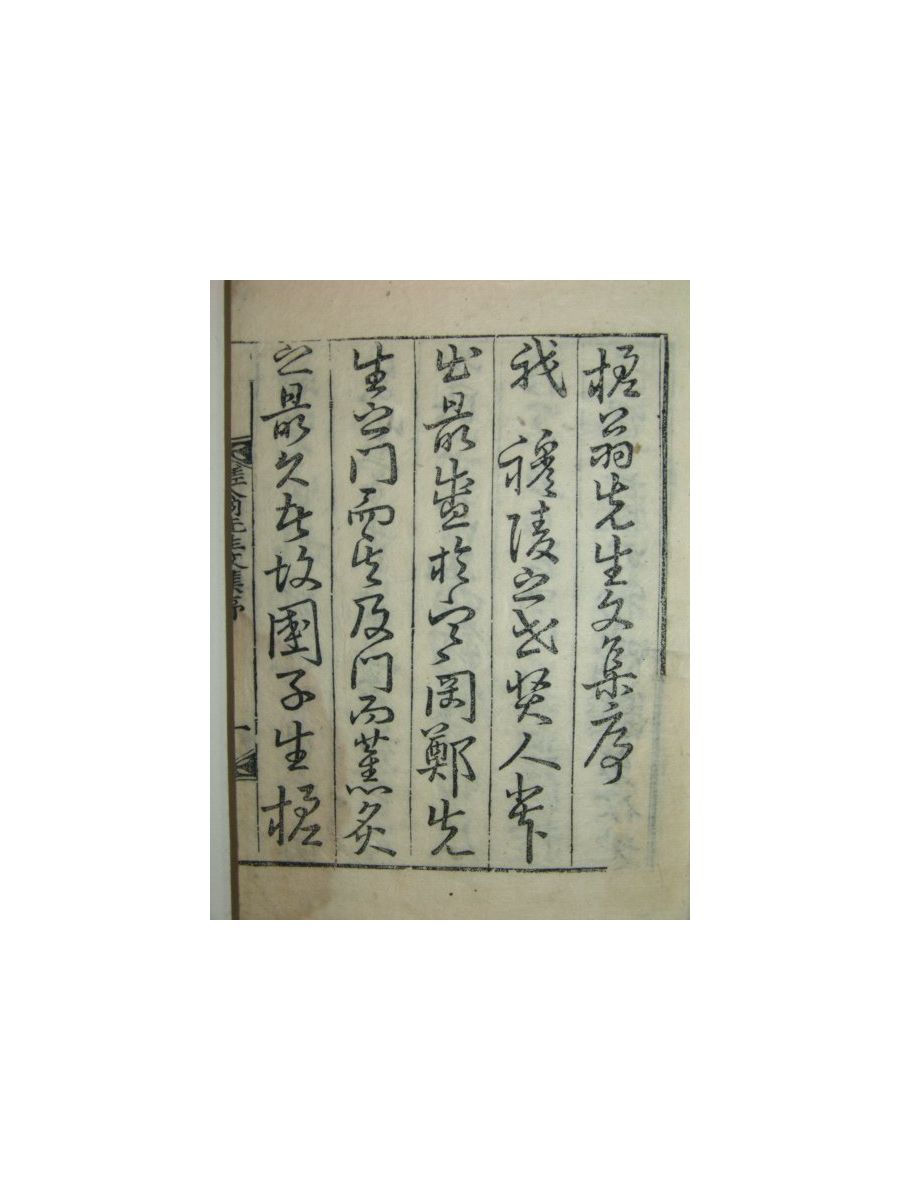 翁先生文集序
我 穆陵之世賢人輩
出最盛於寒岡鄭先
生之門而其及門而薰炙
之最久者故國子生
翁先生文集序 一